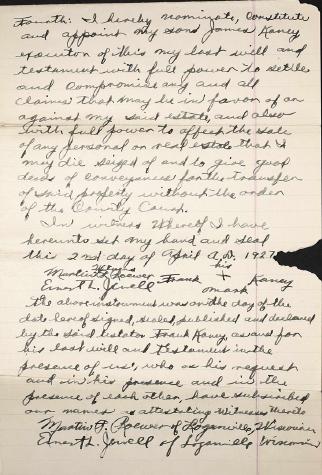 Fourth: I hereby nominate, constitute
and appoint my son James Kaney
executor of this my last will and
testament with full power to settle
and compromise any and all
claims that may be in favor of or
against my said estate, and also
with full power to affect the sale
of any personal or real estate that I
may die seized of and to give good
deeds of conveyance for the transfer
of said property without the order
of the County Court.
In witness Whereof I have
hereunto set my hand and seal
this 2nd day of April A.D. 1927
his
Martin F. Roewer Frank + Kaney
Ernest L. Jewell mark
The above instrument was on the day of the
date hereof signed, sealed, published and declared
by the said testator Frank Kaney, as and for
his last will and testament in the
presence of us, who at his request
and in his presence and in the
presence of each other, have subscribed
our names as attesting Witnesses thereto
Martin F. Roewer of Loganville, Wisconsin
Ernest L. Jewell of Loganville Wisconsin